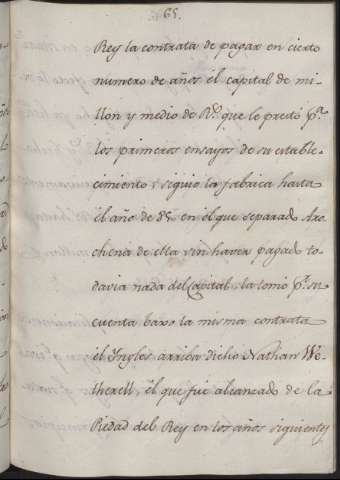 65.
Rey la contrata de pagar en cierto
numero de años el capital de mi-
llon y medio de Rs. que le prestó pa.
los primeros ensayos de su estable-
cimiento; siguio la fabrica hasta
el año de 85 en el que separado Aro-
chena de ella sin haver pagado to-
davia nada del Capital, la tomó pr. su
cuenta baxo la misma contrata
el Ynglés arriba dicho Nathan We-
therell, el que fue alcanzado de la
Piedad del Rey en los años siguientes